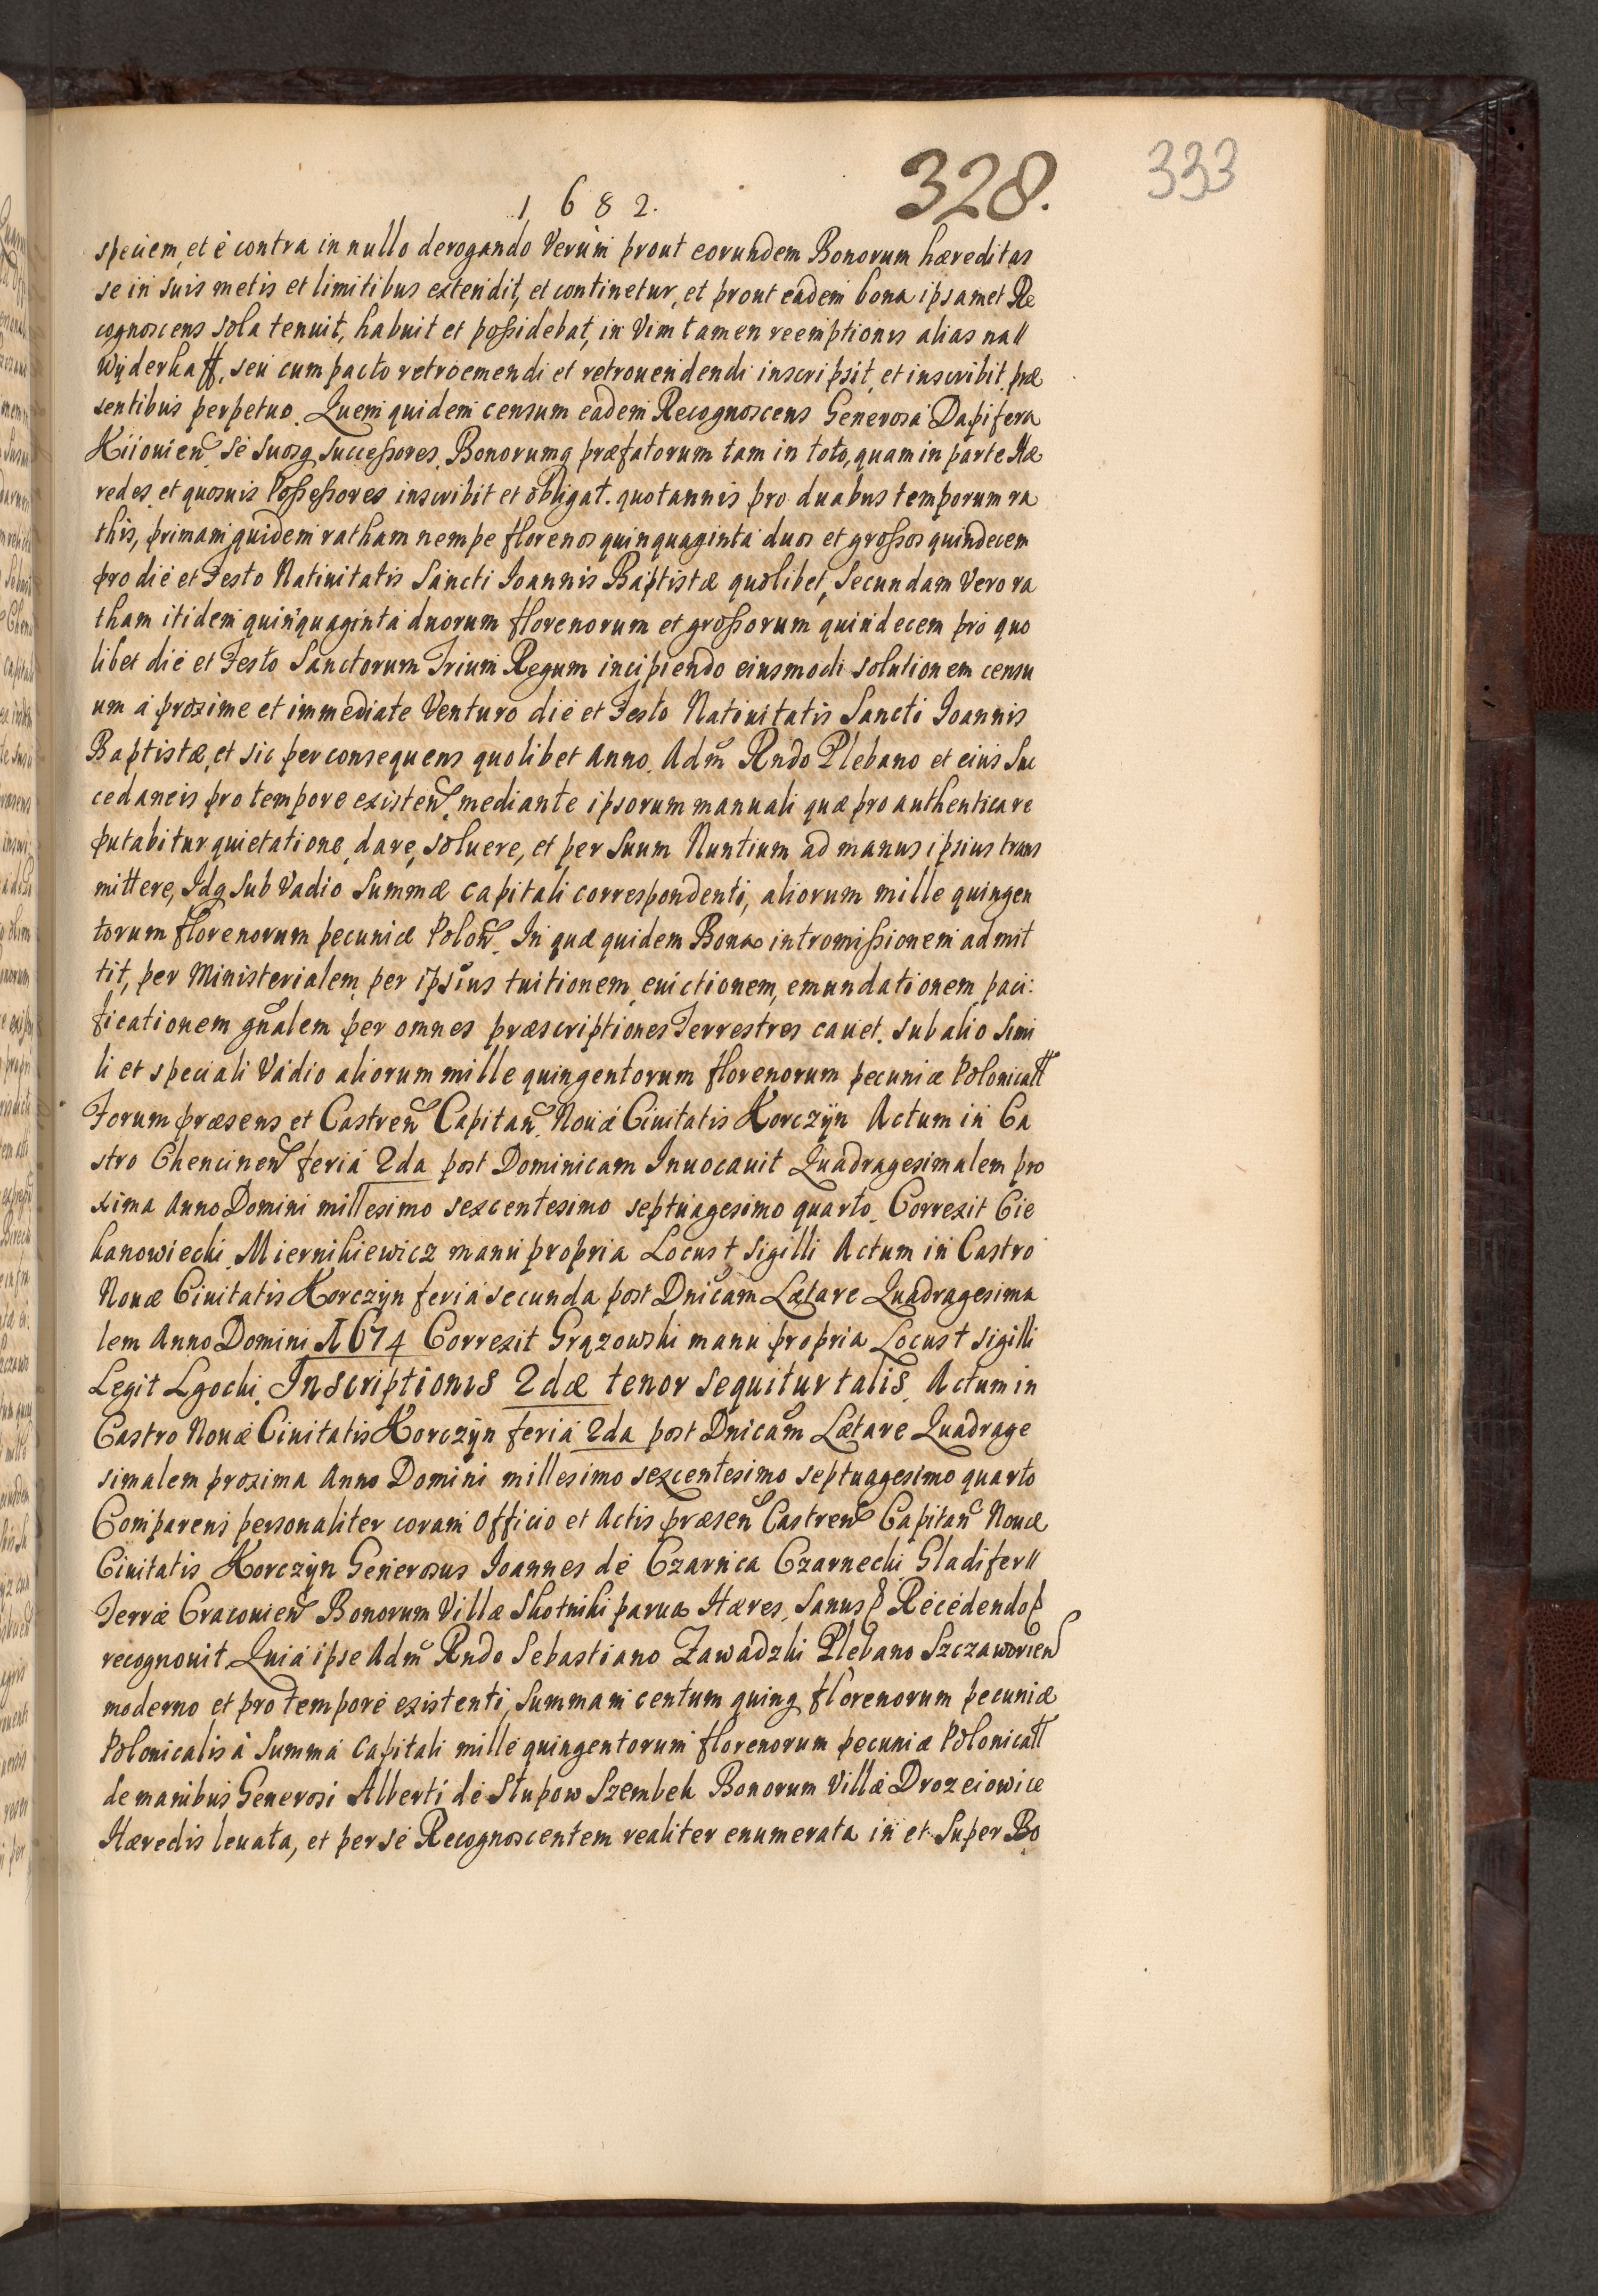 1682.
328.
333
speciem, et è contra in nullo derogando Verùm prout eorundem Bonorum hæreditas
se in suis metis et limitibus extendit, et continetur, et prout eadem bona ipsamet Re
cognoscens sola tenuit, habuit et poßidebat, in Vim tamen reemptionis alias na॥
Wyderkaff, seu cum pacto retroemendi et retrouendendi inscripsit, et inscribit præ
sentibus perpetuo. Quem quidem censum eadem Recognoscens Generosa Dapifera
Kiiouien̄ se suosq̨ succeßores, Bonorumq̨ præfatorum tam in toto, quam in parte Hæ
redes et quosuis Poßeßores inscribit et obligat. quotannis pro duabus temporum ra
this, primam quidem ratham nempe florenos quinquaginta duos et großos quindecem
pro die et Festo Natiuitatis Sancti Ioannis Baptistæ quolibet, Secundam Vero ra
tham itidem quinquaginta duorum florenorum et großorum quindecem pro quo
libet die et Festo Sanctorum Trium Regum incipiendo eiusmodi solutionem censu
um á proxime et immediate Venturo die et Festo Natiuitatis Sancti Ioannis
Baptistæ, et sic per consequens quolibet Anno, Adm̄ Rndo Plebano et eius Suc
cedaneis pro tempore existen̄, mediante ipsorum manuali quæ pro authentica re
putabitur quietatione, dare, soluere, et per Suum Nuntium ad manus ipsius trans
mittere, Idq̨ Sub Vadio Summæ capitali correspondenti, aliorum mille quingen
torum florenorum pecuniæ Polon̄. In quæ quidem Bona intromißionem admit
tit, per Ministerialem, per ipsius tuitionem, euictionem, emundationem, paci:
ficationem gn̄alem per omnes præscriptiones Terrestres cauet. sub alio simi
li et speciali Vadio aliorum mille quingentorum florenorum pecuniæ Polonicałł
Forum præsens et Castren̄ Capitan̄. Nouæ Ciuitatis Korczÿn Actum in Ca
stro Chencinen̄ feriá 2da post Dominicam Inuocauit Quadragesimalem pro
xima Anno Domini millesimo sexcentesimo septuagesimo quarto. Correxit Cie
kanowiecki Miernikiewicz manu propria Locus † Sigilli Actum in Castro
Nouæ Ciuitatis Korczÿn feriá secunda post Dn̄icam Lætare Quadragesima
lem Anno Domini 1674 Correxit Grązowski manu propria Locus † sigilli
Legit Lgocki. Inscriptionis 2dæ tenor sequitur talis. Actum in
Castro Nouæ Ciuitatis Korczÿn feriá 2da post Dn̄icam Lætare Quadrage
simalem proxima Anno Domini millesimo sexcentesimo septuagesimo quarto
Comparens personaliter coram Officio et Actis præsen̄ Castren̄ Capitan̄ Nouæ
Ciuitatis Korczÿn Generosus Ioannes de Czarnca Czarnecki Gladifer॥
Terræ Cracouien̄ Bonorum Villæ Skotniki parua Hæres, Sanus p Recedendo p
recognouit. Quiá ipse Adm̄ Rndo Sebastiano Zawadzki Plebano Szczaworien̄
moderno et pro tempore existenti, Summam centum quinq̨ florenorum pecuniæ
Polonicalis à Summá Capitali mille quingentorum florenorum pecuniæ Polonicałł
de manibus Generosi Alberti de Słupow Szembek Bonorum Villæ Drozeiowice
Hæredis leuata, et per se Recognoscentem realiter enumerata in et Super Bo